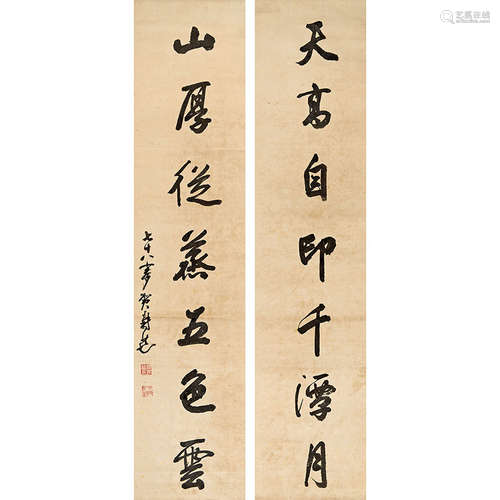 天高自印千潭月
山厚從蒸五色雲
七十八叟賀壽慈